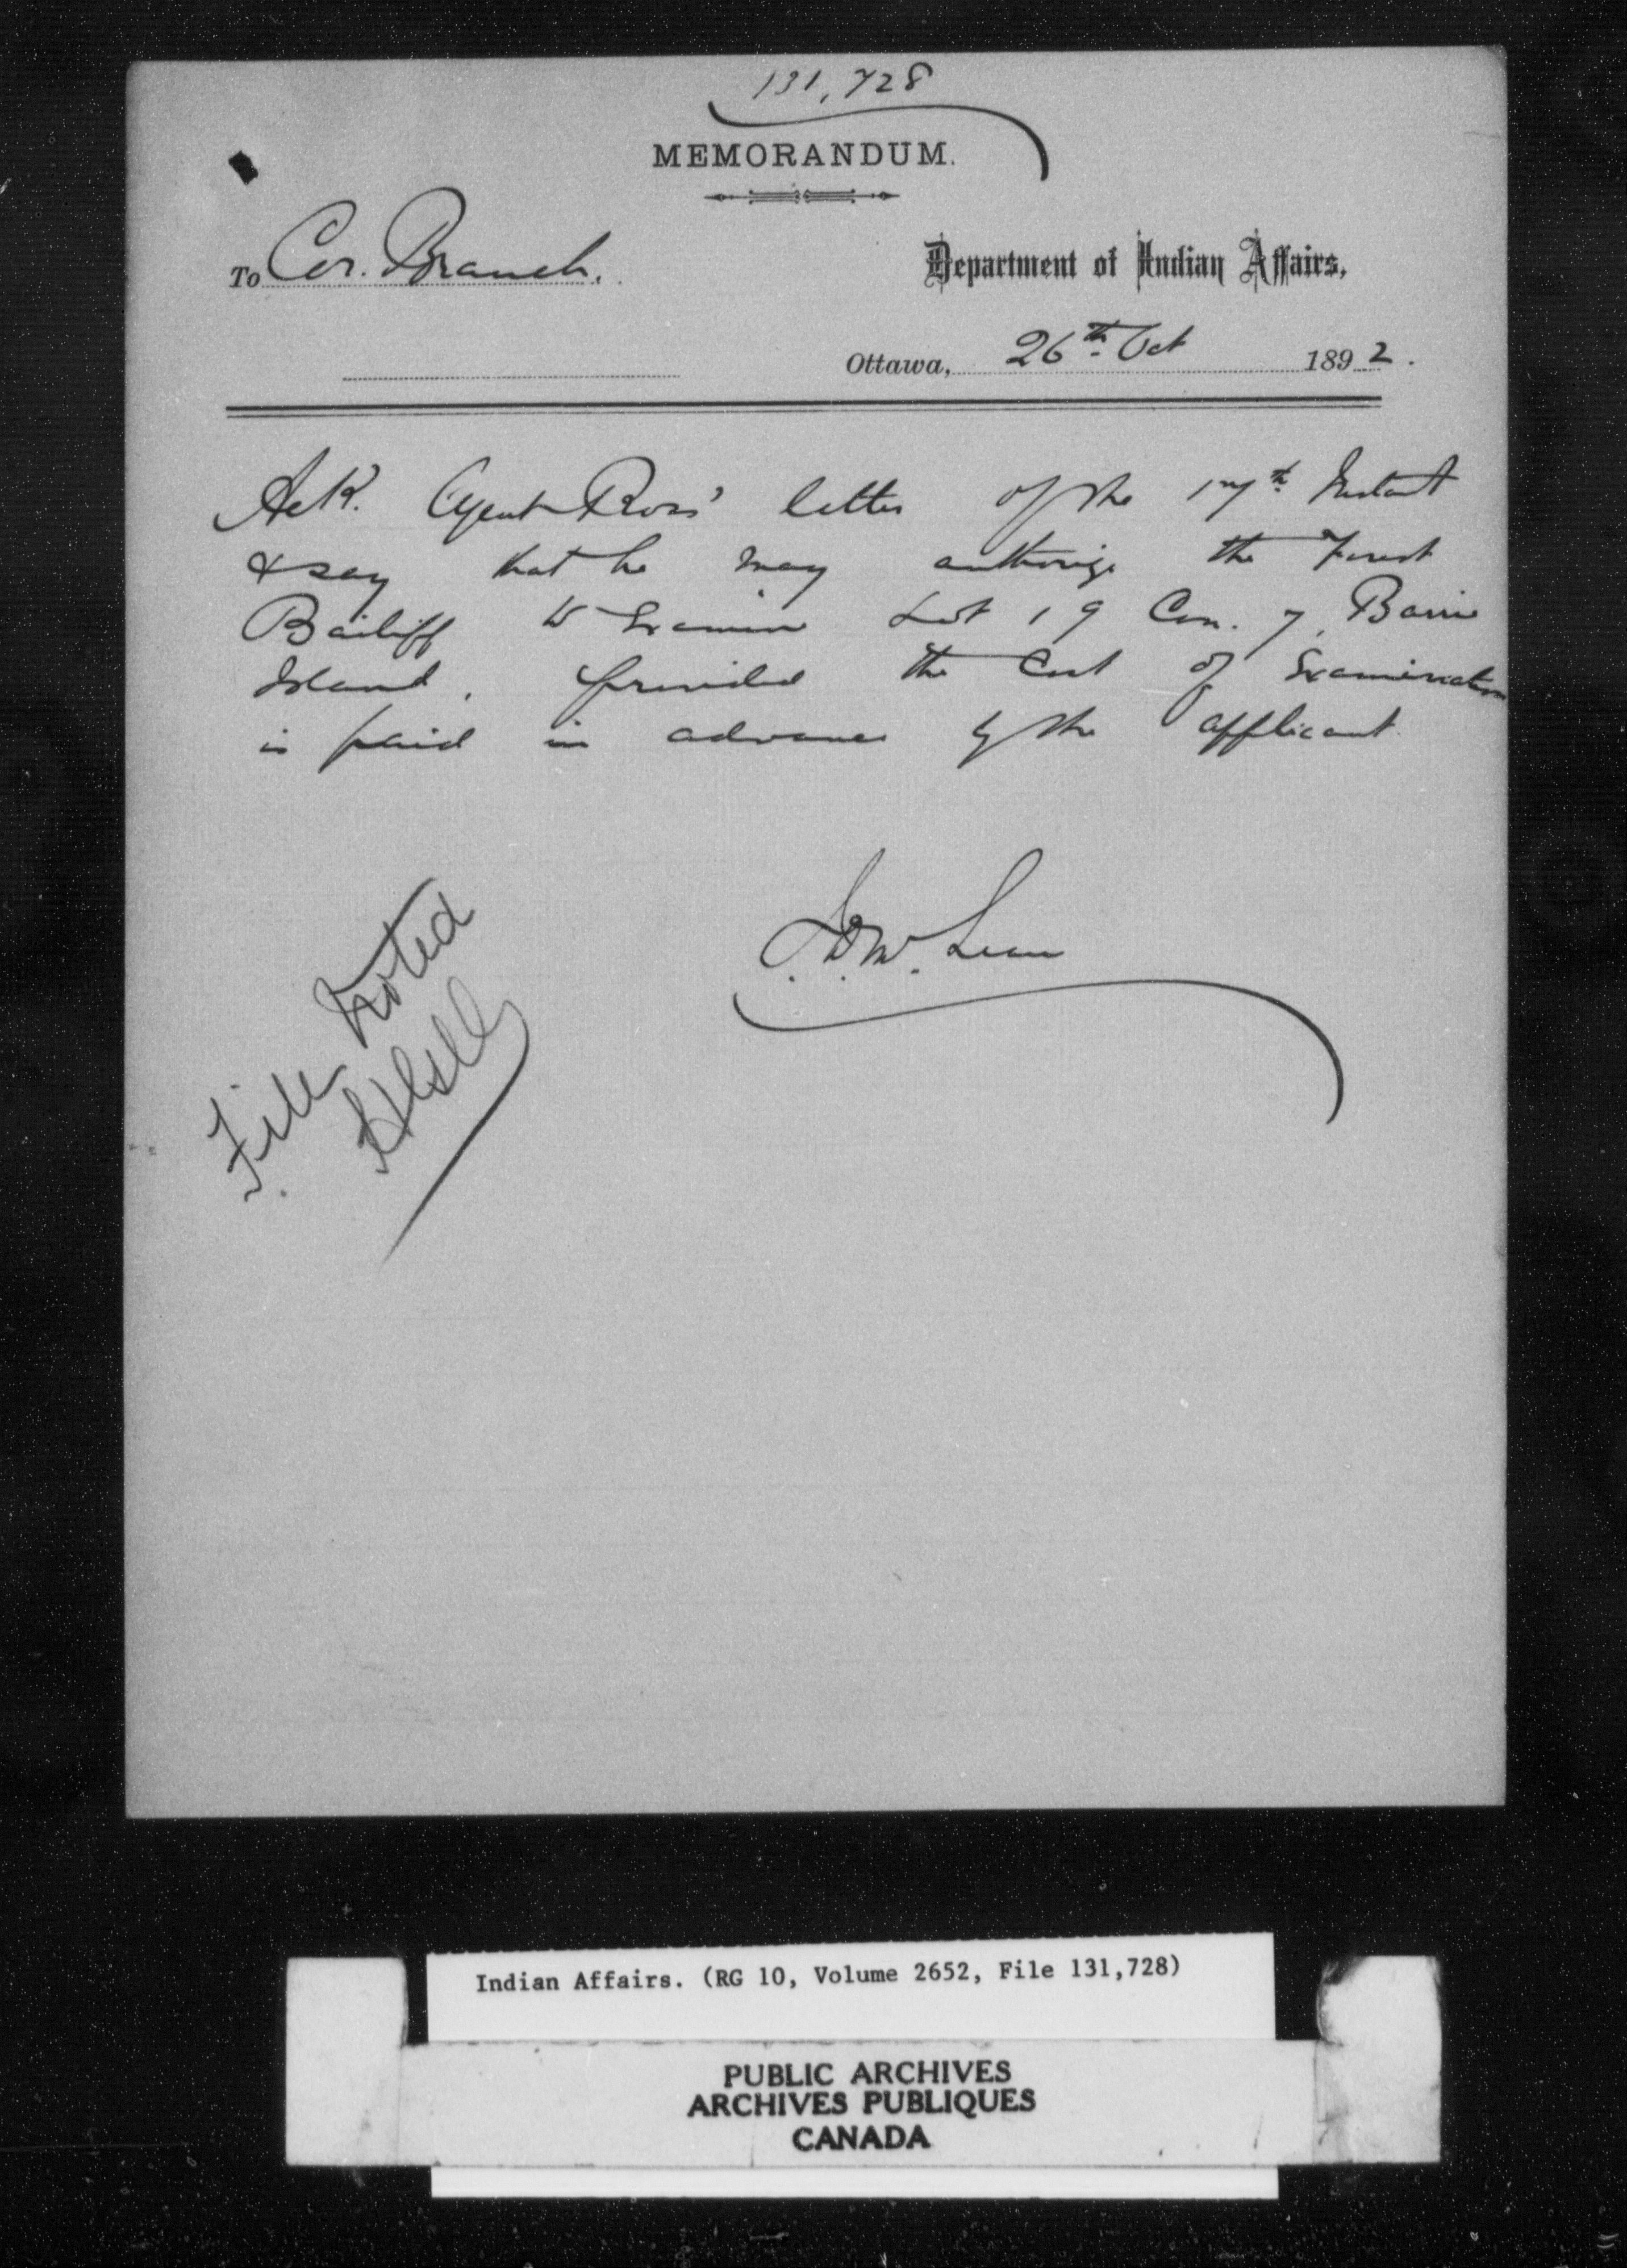 131,728
MEMORANDUM.
To Cor. Branch.
Department of Indian Affairs,
Ottawa, 26th Oct 1892.
Ack. Agent Ross' letter of the 17th Instant
& say that he may authorize the Forest
Bailiff to Examine Lot 19 Con. 7, Barrie
Island, provided the Cost of Examination
is paid in advance by the applicant
J.D. McLean
File Noted
Indian Affairs. (RG 10, Volume 2652, File 131,728)
PUBLIC ARCHIVES
ARCHIVES PUBLIQUES
CANADA